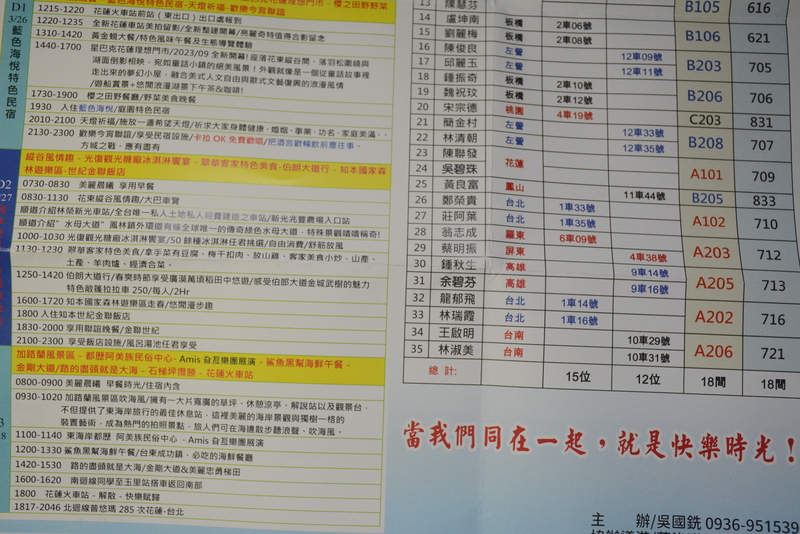 D1
3/26
藍色海悅特色民宿
1215-1220 花蓮車站前站(東出口)出口處報到
1220-1235 全新花蓮車站美拍留影/全新整建開幕/亮麗奇特值得合影留念
1310-1420 黃金蜆大餐/特色風味午餐及生態導覽體驗
1440-1700 星巴克花蓮理想門市/2023/09 全新開幕!座落花東縱谷間,落羽松圍繞與
湖面倒影相映,宛如童話小鎮的絕美風景!外觀就像是一個從童話故事裡
走出來的夢幻小屋,融合美式人文自由與歐式文藝復興的浪漫風情
/遊船賞景+悠閒浪漫湖景下午茶&咖啡!
1730-1900 櫻之田野餐廳/野菜美食晚餐
1930 入住藍色海悅/庭園特色民宿
2010-2100 天燈祈福/施放一盞希望天燈/祈求大家身體健康、婚姻、事業、功名、家庭美滿、、
2130-2300 歡樂今宵聯誼/享受民宿設施/卡拉OK 免費歡唱/把酒言歡暢飲前塵往事、
方城之戰,應有盡有
D2
/27
縱谷風情趣 - 光復觀光糖廠冰淇淋饗宴 - 翠華客家特色美食-伯朗大道行 - 知本國家森
林遊樂區-世紀金聯飯店
0730-0830 美麗晨曦 享用早餐
0830-1130 花東縱谷風情趣/大巴車覽
順道介紹林榮新光車站/全台唯一私人土地私人經費建造之車站/新光兆豐農場入口站
順道介紹"水母大道" 鳳林鎮外環道有條全球唯一的傳奇綠色水母大道,特殊景觀嘖嘖稱奇!
1000-1030 光復觀光糖廠冰淇淋饗宴/50 餘種冰淇淋任君挑選/自由消費/舒筋放風
1130-1230 翠華客家特色美食/拿手菜有豆腐、梅干扣肉、放山雞、客家美食小炒、山產、
土產、羊肉爐、經濟合菜。
1250-1420 伯朗大道行/春爽時節享受廣漠萬頃稻田中悠遊/感受伯朗大道金城武樹的魅力
特色敞篷拉拉車 250/每人/2Hr
1600-1720 知本國家森林遊樂區走春/悠閒漫步趣
1800 入住知本世紀金聯飯店
1830-2000 享用聯誼晚餐/金聯世紀
2100-2300 享受飯店設施/風呂湯池任君享受
3
28
加路蘭風景區 - 都歷阿美族民俗中心- Amis 旮亙樂團展演 - 鯊魚黑幫海鮮午餐 -
金剛大道/路的盡頭就是大海 - 石梯坪攬勝 - 花蓮火車站
0800-0900 美麗晨曦 早餐時光/住宿內含
0930-1020 加路蘭風景區吹海風/擁有一大片寬廣的草坪、休憩涼亭、解說站以及觀景台,
不但提供了東海岸旅行的最佳休息站,這裡美麗的海岸景觀與獨樹一格的
裝置藝術,成為熱門的拍照景點,旅人們可在海邊散步聽浪聲、吹海風。
1100-1140 東海岸都歷 阿美族民俗中心 - Amis 旮亙樂團展演
1200-1330 鯊魚黑幫海鮮午餐/台東成功鎮,必吃的海鮮餐廳
1420-1530 路的盡頭就是大海/金剛大道&美麗忠勇梯田
1600-1620 南迴線同學至玉里站搭車返回南部
1800 花蓮火車站 - 解散 - 快樂賦歸
1817-2046 北迴線普悠瑪 285 次花蓮-台北
13 陳慧芬 B105 616
14 盧坤南 板橋 2車06號
15 劉麗梅 板橋 2車08號 B106 621
16 陳俊良 左營 12車09號
17 邱麗玉 左營 12車11號 B203 705
18 鍾振奇 板橋 2車10號
19 魏祝玟 板橋 2車12號 B206 706
20 宋宗德 桃園 4車19號
21 簡金村 左營 12車33號 C203 831
22 林清朝 左營 12車35號 B208 707
23 陳聯發 花蓮
24 吳碧珠 A101 709
25 黃良富 鳳山 11車44號
26 鄭榮貴 台北 1車33號 B205 833
27 莊阿葉 台北 1車35號 A102 710
28 翁志成 羅東 6車09號
29 蔡明振 屏東 4車38號 A203 712
30 鍾秋生 高雄 9車14號
31 余碧芬 高雄 9車16號 A205 713
32 龍郁飛 台北 1車14號
33 林瑞霞 台北 1車16號 A202 716
34 王啟明 台南 10車29號
35 林淑美 台南 10車31號 A206 721
總 計: 15位 12位 18間 18間
當我們同在一起,就是快樂時光!
主 辦/吳國銑 0936-951539